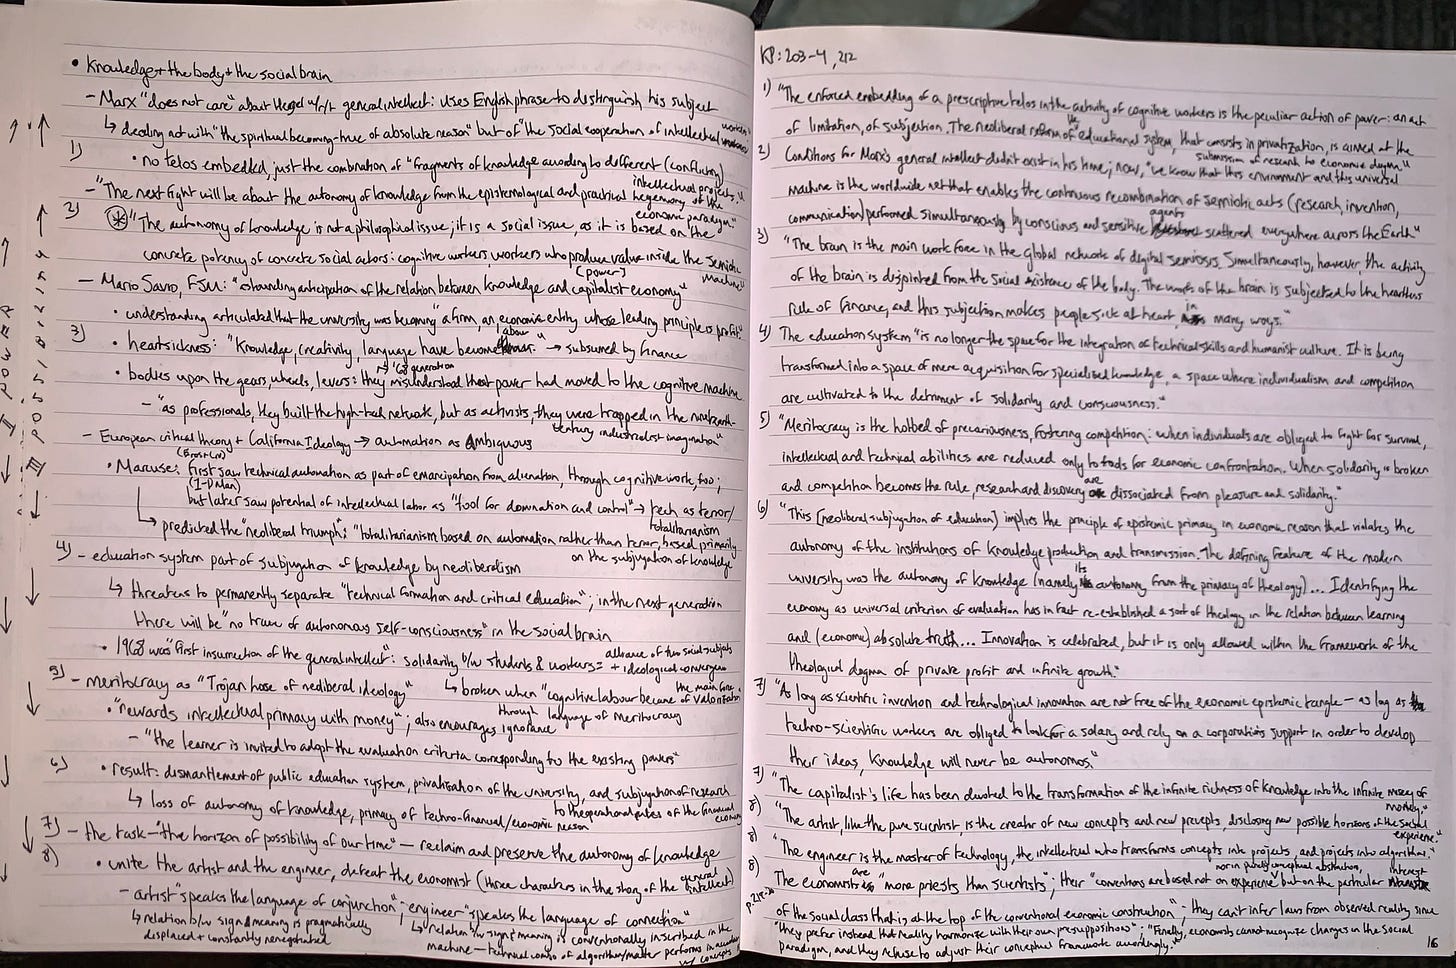 • Knowledge + the body + the social brain
– Marx "does not care" about Hegel w/r/t general intellect: uses English phrase to distinguish his subject
↳ dealing not with "the spiritual becoming-true of absolute reason" but of "the social cooperation of intellectual workers
1) • no telos embedded, just the combination of "fragments of knowledge according to different (conflicting) intellectual projects."
– "The next fight will be about the autonomy of knowledge from the epistemological and practical hegemony of the economic paradigm."
2) * "The autonomy of knowledge is not a philosophical issue; it is a social issue, as it is based on "the
concrete potency (power) of concrete social actors: cognitive workers, workers who produce value inside the semiotic machine"
– Mario Savio, FSM: "astounding anticipation of the relation between knowledge and capitalist economy"
• understanding articulated that the university was becoming "a firm, an economic entity whose leading principle is profit"
3) • heartsickness: "Knowledge, creativity, language have become labour" → subsumed by finance
• bodies upon the gears, wheels, levers: they misunderstood that power had moved to the cognitive machine
– "as professionals, they built the high-tech network, but as activists, they were trapped in the nineteenth-century industrialist imagination"
– European critical theory + California Ideology → automation as ambiguous
• Marcuse: first saw technical automation as part of emancipation from alienation, through cognitive work, too;
(1-D Man)
but later saw potential of intellectual labor as "tool for domination and control" → tech as terror/totalitarianism
↳ predicted the "neoliberal triumph": "totalitarianism based on automation rather than terror, based primarily on the subjugation of knowledge
4) – education system part of subjugation of knowledge by neoliberalism
↳ threatens to permanently separate "technical formation and critical education"; in the next generation
there will be "no trace of autonomous self-consciousness" in the social brain
• 1968 was "first insurrection of the general intellect": solidarity b/w students & workers = alliance of two social subjects + ideological convergence
5) – meritocracy as "Trojan horse of neoliberal ideology" ↳ broken when "cognitive labour became the main force of valorization
through language of meritocracy
• "rewards intellectual primacy with money"; also encourages ignorance
– "the learner is invited to adopt the evaluation criteria corresponding to the existing powers"
6) • result: dismantlement of public education system, privatization of the university, and subjugation of research to the operational rules of the financial economy
↳ loss of autonomy of knowledge, primacy of techno-financial/economic reason
7) – the task – "the horizon of possibility of our time" – reclaim and preserve the autonomy of knowledge
8) • unite the artist and the engineer, defeat the economist (three characters in the story of the general intellect)
– artist "speaks the language of conjunction"; engineer "speaks the language of connection"
↳ relation b/w sign & meaning is pragmatically displaced + constantly renegotiated
↳ relation b/w sign & meaning is conventionally inscribed in the
machine – technical combo of algorithm/matter performs in accordance w/ concepts
KP: 203-4, 212
1) "The enforced embedding of a prescriptive telos in the activity of cognitive workers is the peculiar action of power: an act
of limitation, of subjection. The neoliberal reform of the educational system, that consists in privatization, is aimed at the submission of research to economic dogma."
2) Conditions for Marx's general intellect didn't exist in his time; now, "we know that this environment and this universal
machine is the worldwide net that enables the continuous recombination of semiotic acts (research, invention,
communication) performed simultaneously by conscious and sensitive agents scattered everywhere across the Earth."
3) "The brain is the main work force in the global network of digital semiosis. Simultaneously, however, the activity
of the brain is disjointed from the social existence of the body. The work of the brain is subjected to the heartless
rule of finance, and this subjection makes people sick at heart, in many ways."
4) The education system "is no longer the space for the integration of technical skills and humanist culture. It is being
transformed into a space of mere acquisition for specialised knowledge, a space where individualism and competition
are cultivated to the detriment of solidarity and consciousness."
5) "Meritocracy is the hotbed of precariousness, fostering competition: when individuals are obliged to fight for survival,
intellectual and technical abilities are reduced only to tools for economic confrontation. When solidarity is broken
and competition becomes the rule, research and discovery are dissociated from pleasure and solidarity."
6) "This [neoliberal subjugation of education] implies the principle of epistemic primacy, in economic reason that violates the
autonomy of the institutions of knowledge production and transmission. The defining feature of the modern
university was the autonomy of knowledge (namely its autonomy from the primacy of theology)... Identifying the
economy as universal criterion of evaluation has in fact re-established a sort of theology in the relation between learning
and (economic) absolute truth... Innovation is celebrated, but it is only allowed within the framework of the
theological dogma of private profit and infinite growth."
7) "As long as scientific invention and technological innovation are not free of the economic epistemic tangle – as long as
techno-scientific workers are obliged to look for a salary and rely on a corporation's support in order to develop
their ideas, knowledge will never be autonomous."
7) "The capitalist's life has been devoted to the transformation of the infinite richness of knowledge into the infinite misery of money."
8) "The artist, like the pure scientist, is the creator of new concepts and new precepts, disclosing new possible horizons of the social experience."
8) "The engineer is the master of technology, the intellectual who transforms concepts into projects, and projects into algorithm."
8) The economists are "more priests than scientists"; their "conventions are based not on experience nor in purely conceptual abstraction, but on the particular interest
p.212: of the social class that is at the top of the conventional economic construction"; they can't infer laws from observed reality since
"they prefer instead that reality harmonize with their own presuppositions"; "Finally, economists cannot recognize changes in the social
paradigm, and they refuse to adjust their conceptual framework accordingly."
16